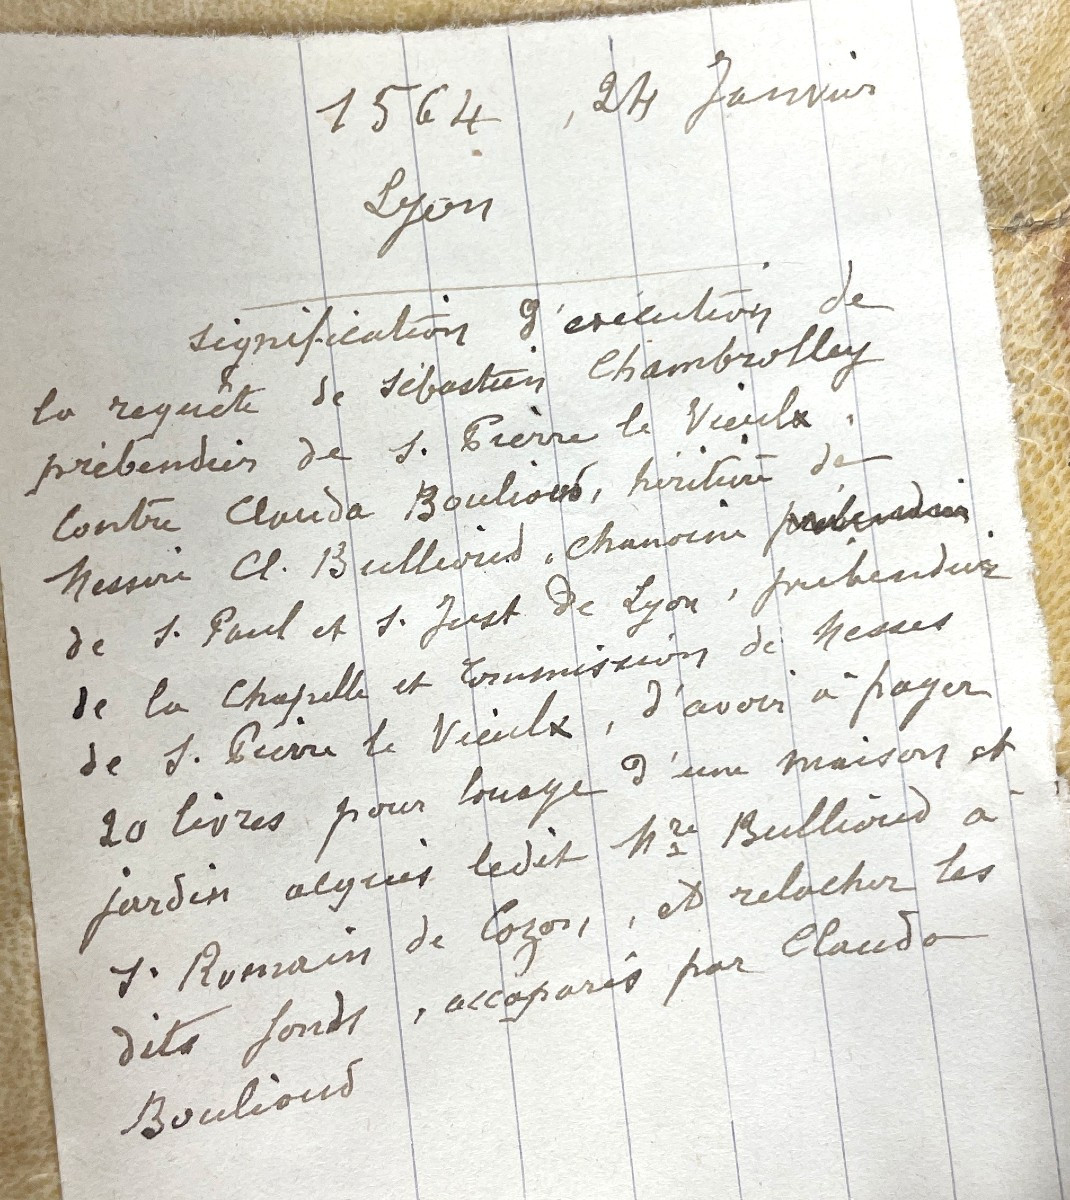 1564, 24 Janvier
Lyon
signification d'exécution de
la requête de Sébastien Chambrolley
prébendier de S. Pierre le Vieulx,
contre Clauda Boulioud, héritière de
Messire Cl. Bullioud, chanoine prébendier
de S. Paul et S. Just de Lyon, prébendier
de la Chapelle et Commission de Messes
de S. Pierre le Vieulx, d'avoir à payer
20 livres pour louage d'une maison et
jardin acquis ledit Mre Bullioud à
S. Romain de Cozon, et relacher les
dits fonds, accaparés par Clauda
Boulioud